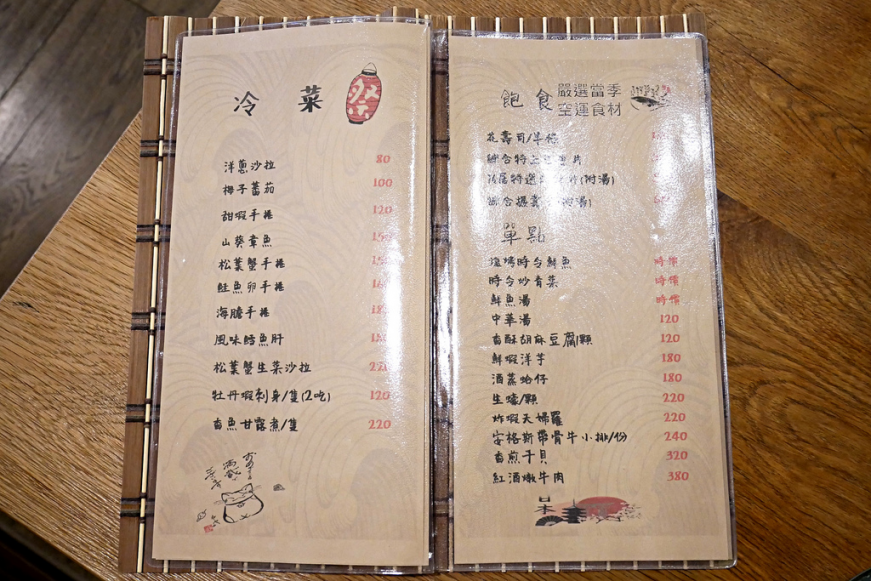 冷菜
祭
洋蔥沙拉 80
梅子蕃茄 100
甜蝦手捲 120
山葵章魚
松葉蟹手捲
鮭魚卵手捲
海膽手捲
風味鱈魚肝
松葉蟹生菜沙拉 220
牡丹蝦刺身/隻(2吃) 120
香魚甘露煮/隻 220
飽食 嚴選當季
空運食材
花壽司/半條
綜合特上
(附湯)
綜合
單點
時令鮮魚 時價
時令炒青菜 時價
鮮魚湯 時價
中華湯 120
香酥胡麻豆腐/顆 120
鮮蝦洋芋 180
酒蒸蛤仔 180
生蠔/顆 220
炸蝦天婦羅 220
安格斯帶骨牛小排/份 240
香煎干貝 320
紅酒燉牛肉 380
日本